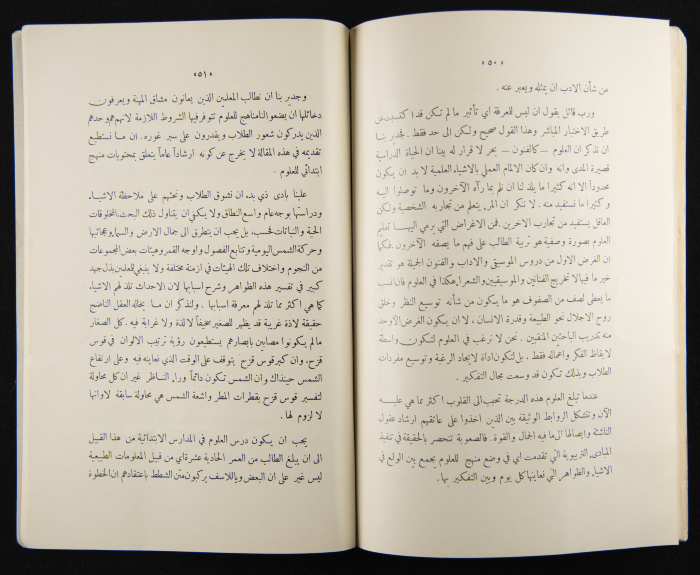 «٥٠»
من شأن الادب ان يمثله ويعبر عنه .
ورب قائل يقول ان ليس للمعرفة اي تأثير ما لم تكن قد اكتسبت عن
طريق الاختبار المباشر وهذا القول صحيح ولكن الى حد فقط . فجدير بنا
ان نذكر ان العلوم — كالفنون — بحر لا قرار له بينا ان الحياة الدراسية
قصيرة المدى وانه وان كان الالمام العملي بالاشياء العلمية لا بد ان يكون
محدوداً الا انه كثيرا ما يلذ لنا ان نلم بما رآه الآخرون وما توصلوا اليه
وكثيرا ما نستفيد منه . لا ننكر ان المرء يتعلم من تجاربه الشخصية ولكن
العاقل يستفيد من تجارب الآخرين . فمن الاغراض التي يرمي اليها تعليم
العلوم بصورة وصفية هو تربية الطالب على فهم ما يصفه الآخرون . فكما
ان الغرض الاول من دروس الموسيقى والآداب والفنون الجميلة هو تقدير
خير ما فيها لا تخريج الفنانين والموسيقيين والشعراء هكذا في العلوم فان انسب
ما يعطى لصف من الصفوف هو ما يكون من شأنه توسيع النظر وخلق
روح الاجلال نحو الطبيعة وقدرة الانسان ، لا ان يكون الغرض الاوحد
منه تدريب الباحثين المنقبين . نحن لا نرغب في العلوم لتكون واسطة
لايقاظ الفكر واعماله فقط ، بل لتكون اداة لايجاد الرغبة وتوسيع مفردات
الطلاب وبذلك تكون قد وسعت مجال التفكير .
عندما تبلغ العلوم هذه الدرجة تحبب الى القلوب اكثر مما هي عليه
الآن وتتشكل الروابط الوثيقة بين الذين اخذوا على عاتقهم ارشاد عقول
الناشئة وايصالها الى ما فيه الجمال والقوة . فالصعوبة تنحصر بالحقيقة في تنفيذ
المبادئ التربوية التي تقدمت اي في وضع منهج للعلوم يجمع بين الولع في
الاشياء والظواهر التي نعاينها كل يوم وبين التفكير بها .
«٥١»
وجدير بنا ان نطالب المعلمين الذين يعانون مشاق المهنة ويعرفون
دخائلها ان يضعوا لنا مناهج للعلوم تتوفر فيها الشروط اللازمة لانهم هم وحدهم
الذين يدركون شعور الطلاب ويقدرون على سبر غوره . ان ما نستطيع
تقديمه في هذه المقالة لا يخرج عن كونه ارشاداً عاماً يتعلق بمحتويات منهج
ابتدائي للعلوم .
علينا بادى ذي بدء ان نشوق الطلاب ونحثهم على ملاحظة الاشياء
ودراستها بوجه عام واسع النطاق ولا يكفي ان يتناول ذلك البحث المخلوقات
الحية والنباتات فحسب ، بل يجب ان يتطرق الى جمال الارض والسماء وعجائبها
وحركة الشمس اليومية وتتابع الفصول واوجه القمر وهيئات بعض المجموعات
من النجوم واختلاف تلك الهيئات في ازمنة مختلفة ولا ينبغي للمعلمين بذل جهد
كبير في تفسير هذه الظواهر وشرح اسبابها لان الاحداث تلذ لهم الاشياء
كما هي اكثر مما تلذ لهم معرفة اسبابها . ولنذكر ان ما يخاله العقل الناضج
حقيقة لاذة غريبة قد يظهر للصغير سخيفاً لا لذة ولا غرابة فيه . كل الصغار
ما لم يكونوا مصابين بابصارهم يستطيعون رؤية ترتيب الالوان في قوس
قزح ، وان كبر قوس قزح يتوقف على الوقت الذي نعاينه فيه وعلى ارتفاع
الشمس حينذاك وان الشمس تكون دائماً وراء الناظر غير ان كل محاولة
لتفسير قوس قزح بقطرات المطر واشعة الشمس هي محاولة سابقة لاوانها
لا لزوم لها .
يجب ان يكون درس العلوم في المدارس الابتدائية من هذا القبيل
الى ان يبلغ الطالب من العمر الحادية عشرة اي من قبيل المعلومات الطبيعية
ليس غير على ان البعض وياللاسف يركبون متن الشطط باعتقادهم ان الخطوة